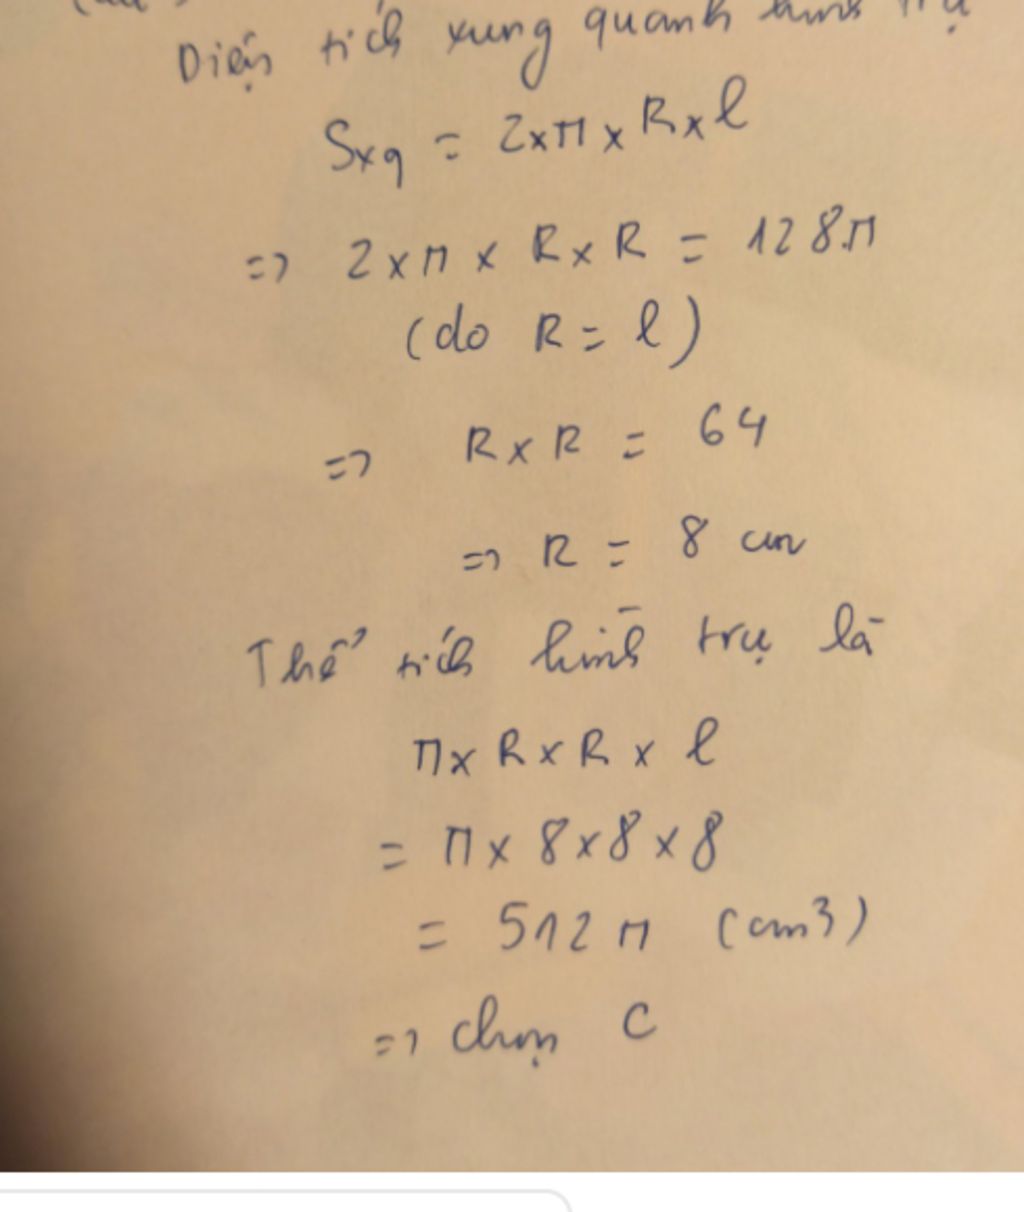 Diện tích xung quanh hình trụ
Sxq = 2 x π x R x l
=> 2 x π x R x R = 128.π
(do R = l)
=> R x R = 64
=> R = 8 cm
Thể tích hình trụ là
π x R x R x l
= π x 8 x 8 x 8
= 512 π (cm3)
=> chọn C